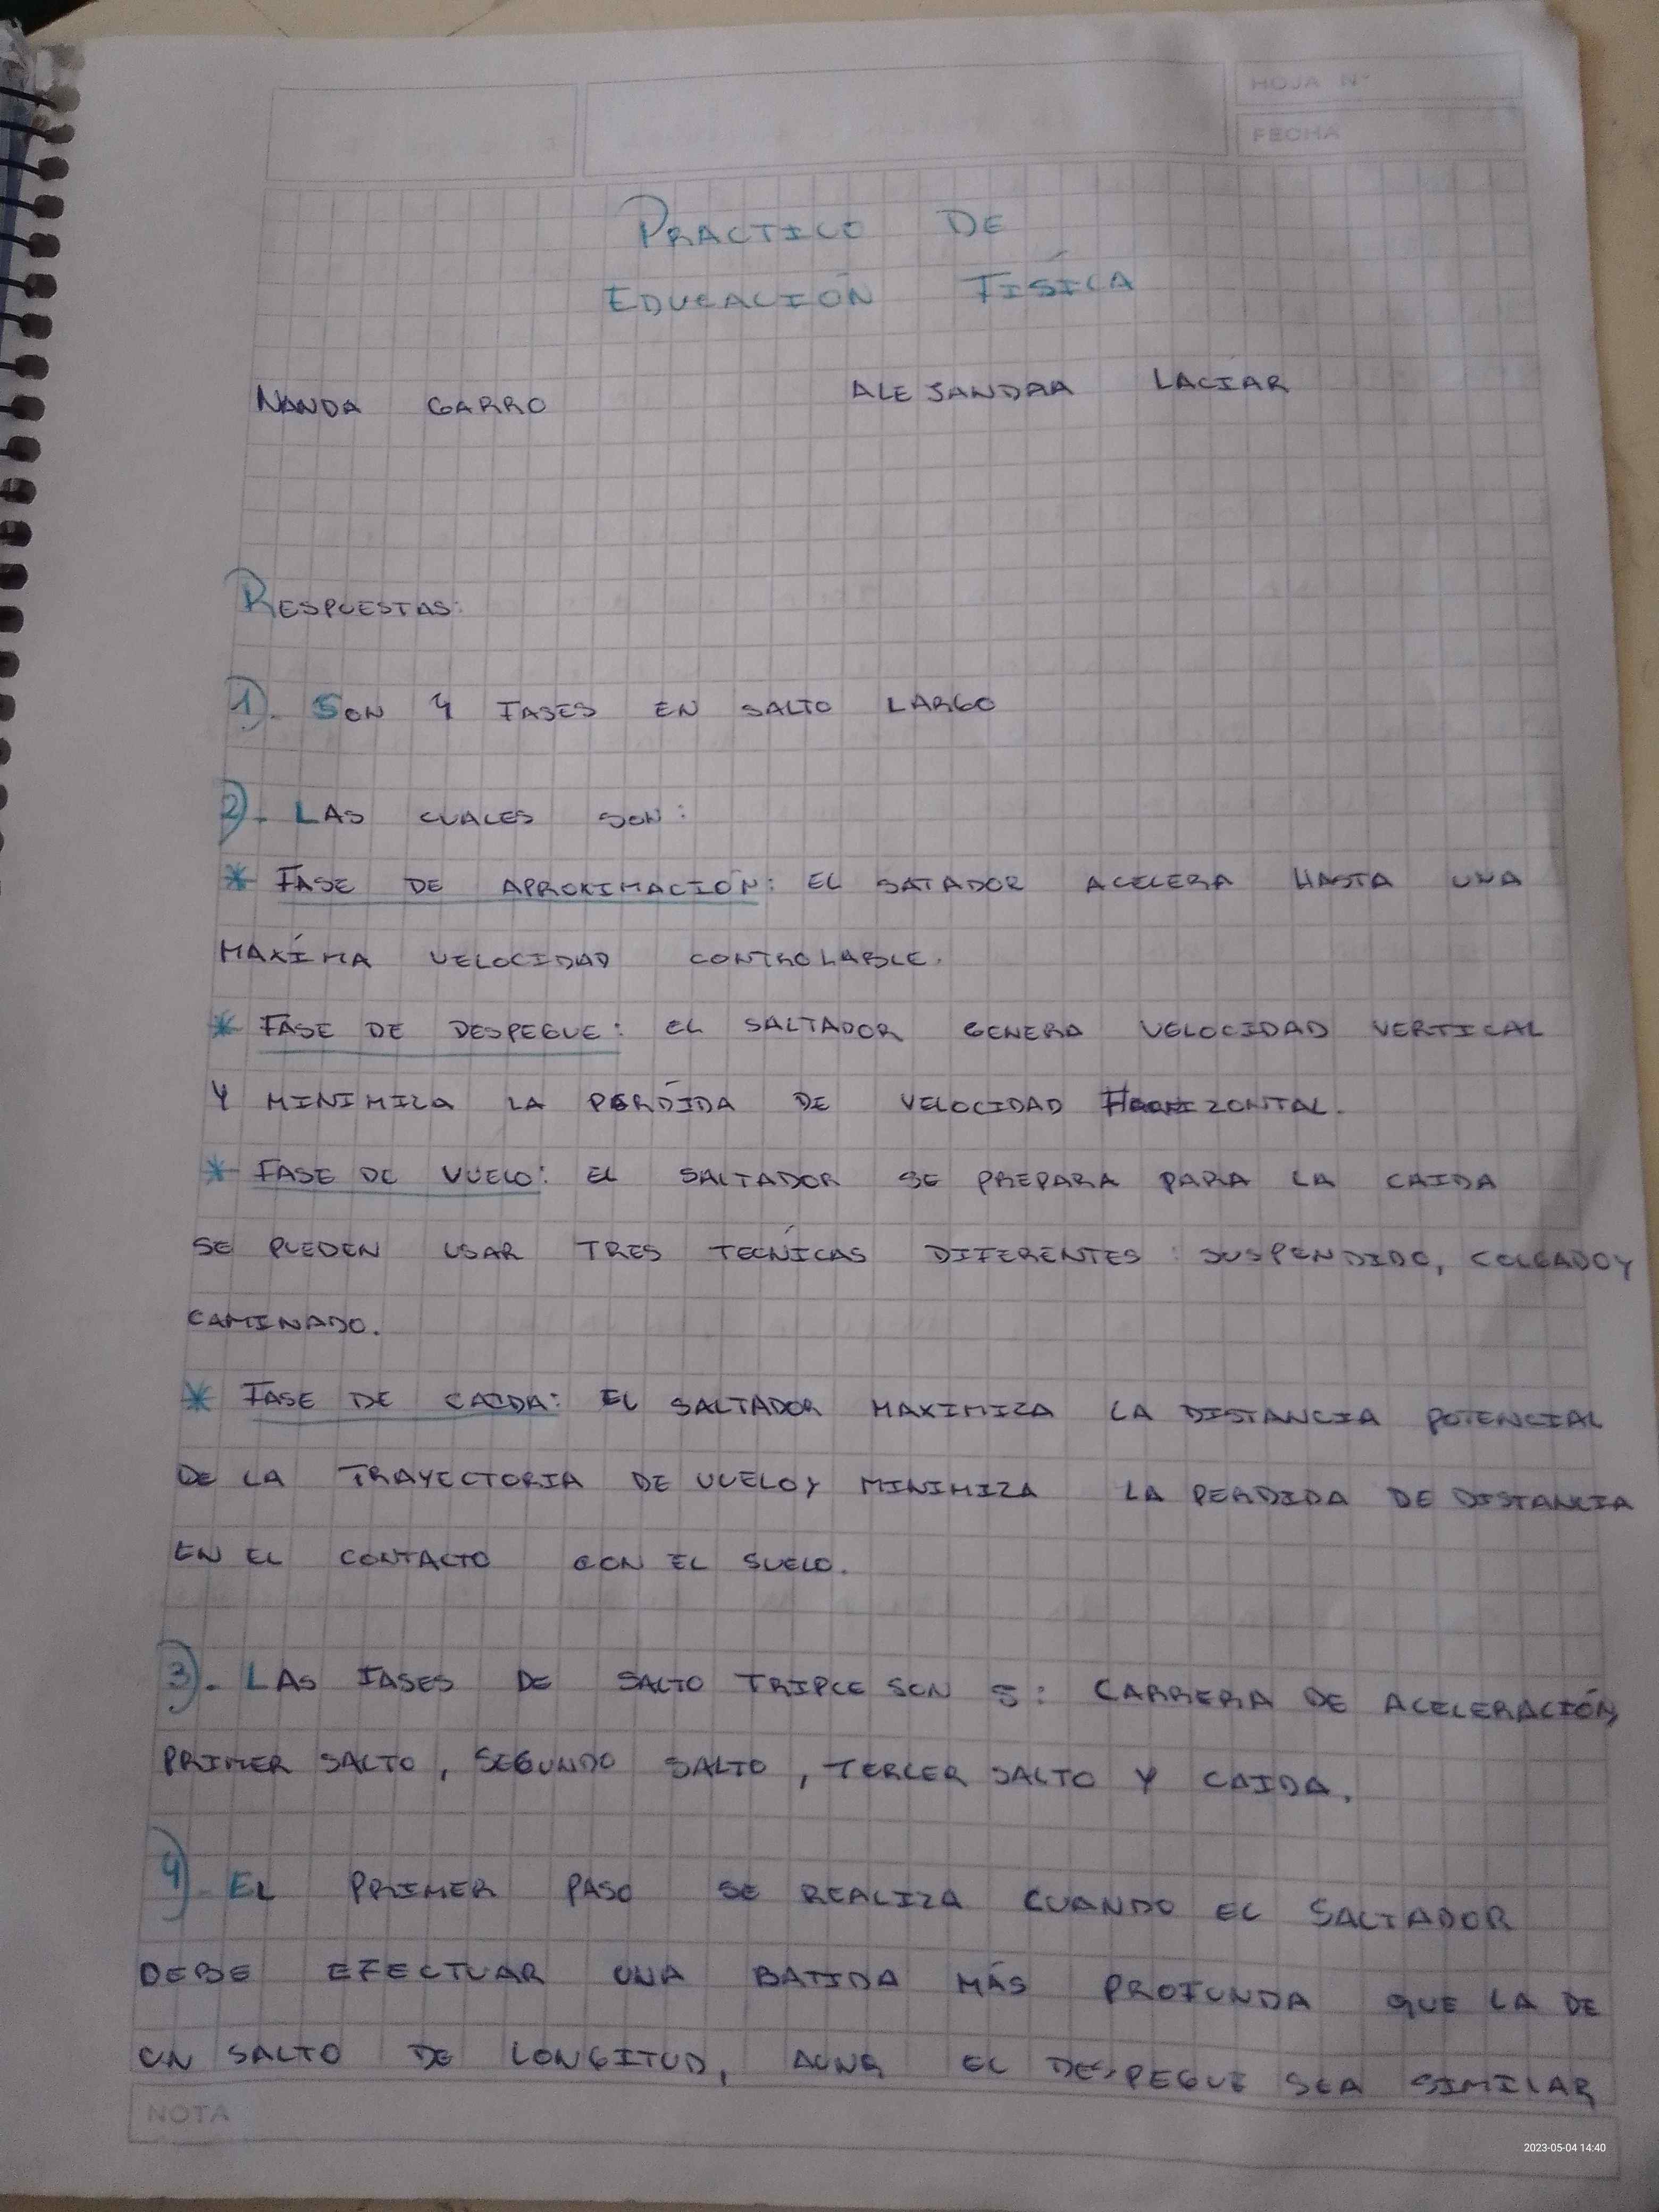 HOJA N°
FECHA
PRACTICO DE
EDUCACIÓN FISÍCA
NANDA GARRO ALEJANDRA LACIAR
RESPUESTAS:
1). SON 4 FASES EN SALTO LARGO
2). LAS CUALES SON:
* FASE DE APROXIMACIÓN: EL SATADOR ACELERA HASTA UNA
MAXÍMA VELOCIDAD CONTROLABLE.
* FASE DE DESPEGUE: EL SALTADOR GENERA VELOCIDAD VERTICAL
Y MINIMIZA LA PERDÍDA DE VELOCIDAD HORIZONTAL.
* FASE DE VUELO: EL SALTADOR SE PREPARA PARA LA CAIDA
SE PUEDEN USAR TRES TECNÍCAS DIFERENTES: SUSPENDIDO, COLGADO Y
CAMINADO.
* FASE DE CAIDA: EL SALTADOR MAXIMIZA LA DISTANCIA POTENCIAL
DE LA TRAYECTORIA DE VUELO Y MINIMIZA LA PERDIDA DE DISTANCIA
EN EL CONTACTO CON EL SUELO.
3). LAS FASES DE SALTO TRIPLE SON 5: CARRERA DE ACELERACIÓN,
PRIMER SALTO, SEGUNDO SALTO, TERCER SALTO Y CAIDA.
4). EL PRIMER PASO SE REALIZA CUANDO EL SALTADOR
DEBE EFECTUAR UNA BATIDA MÁS PROFUNDA QUE LA DE
UN SALTO DE LONGITUD, AUNQ EL DESPEGUE SEA SIMILAR
NOTA
2023-05-04 14:40